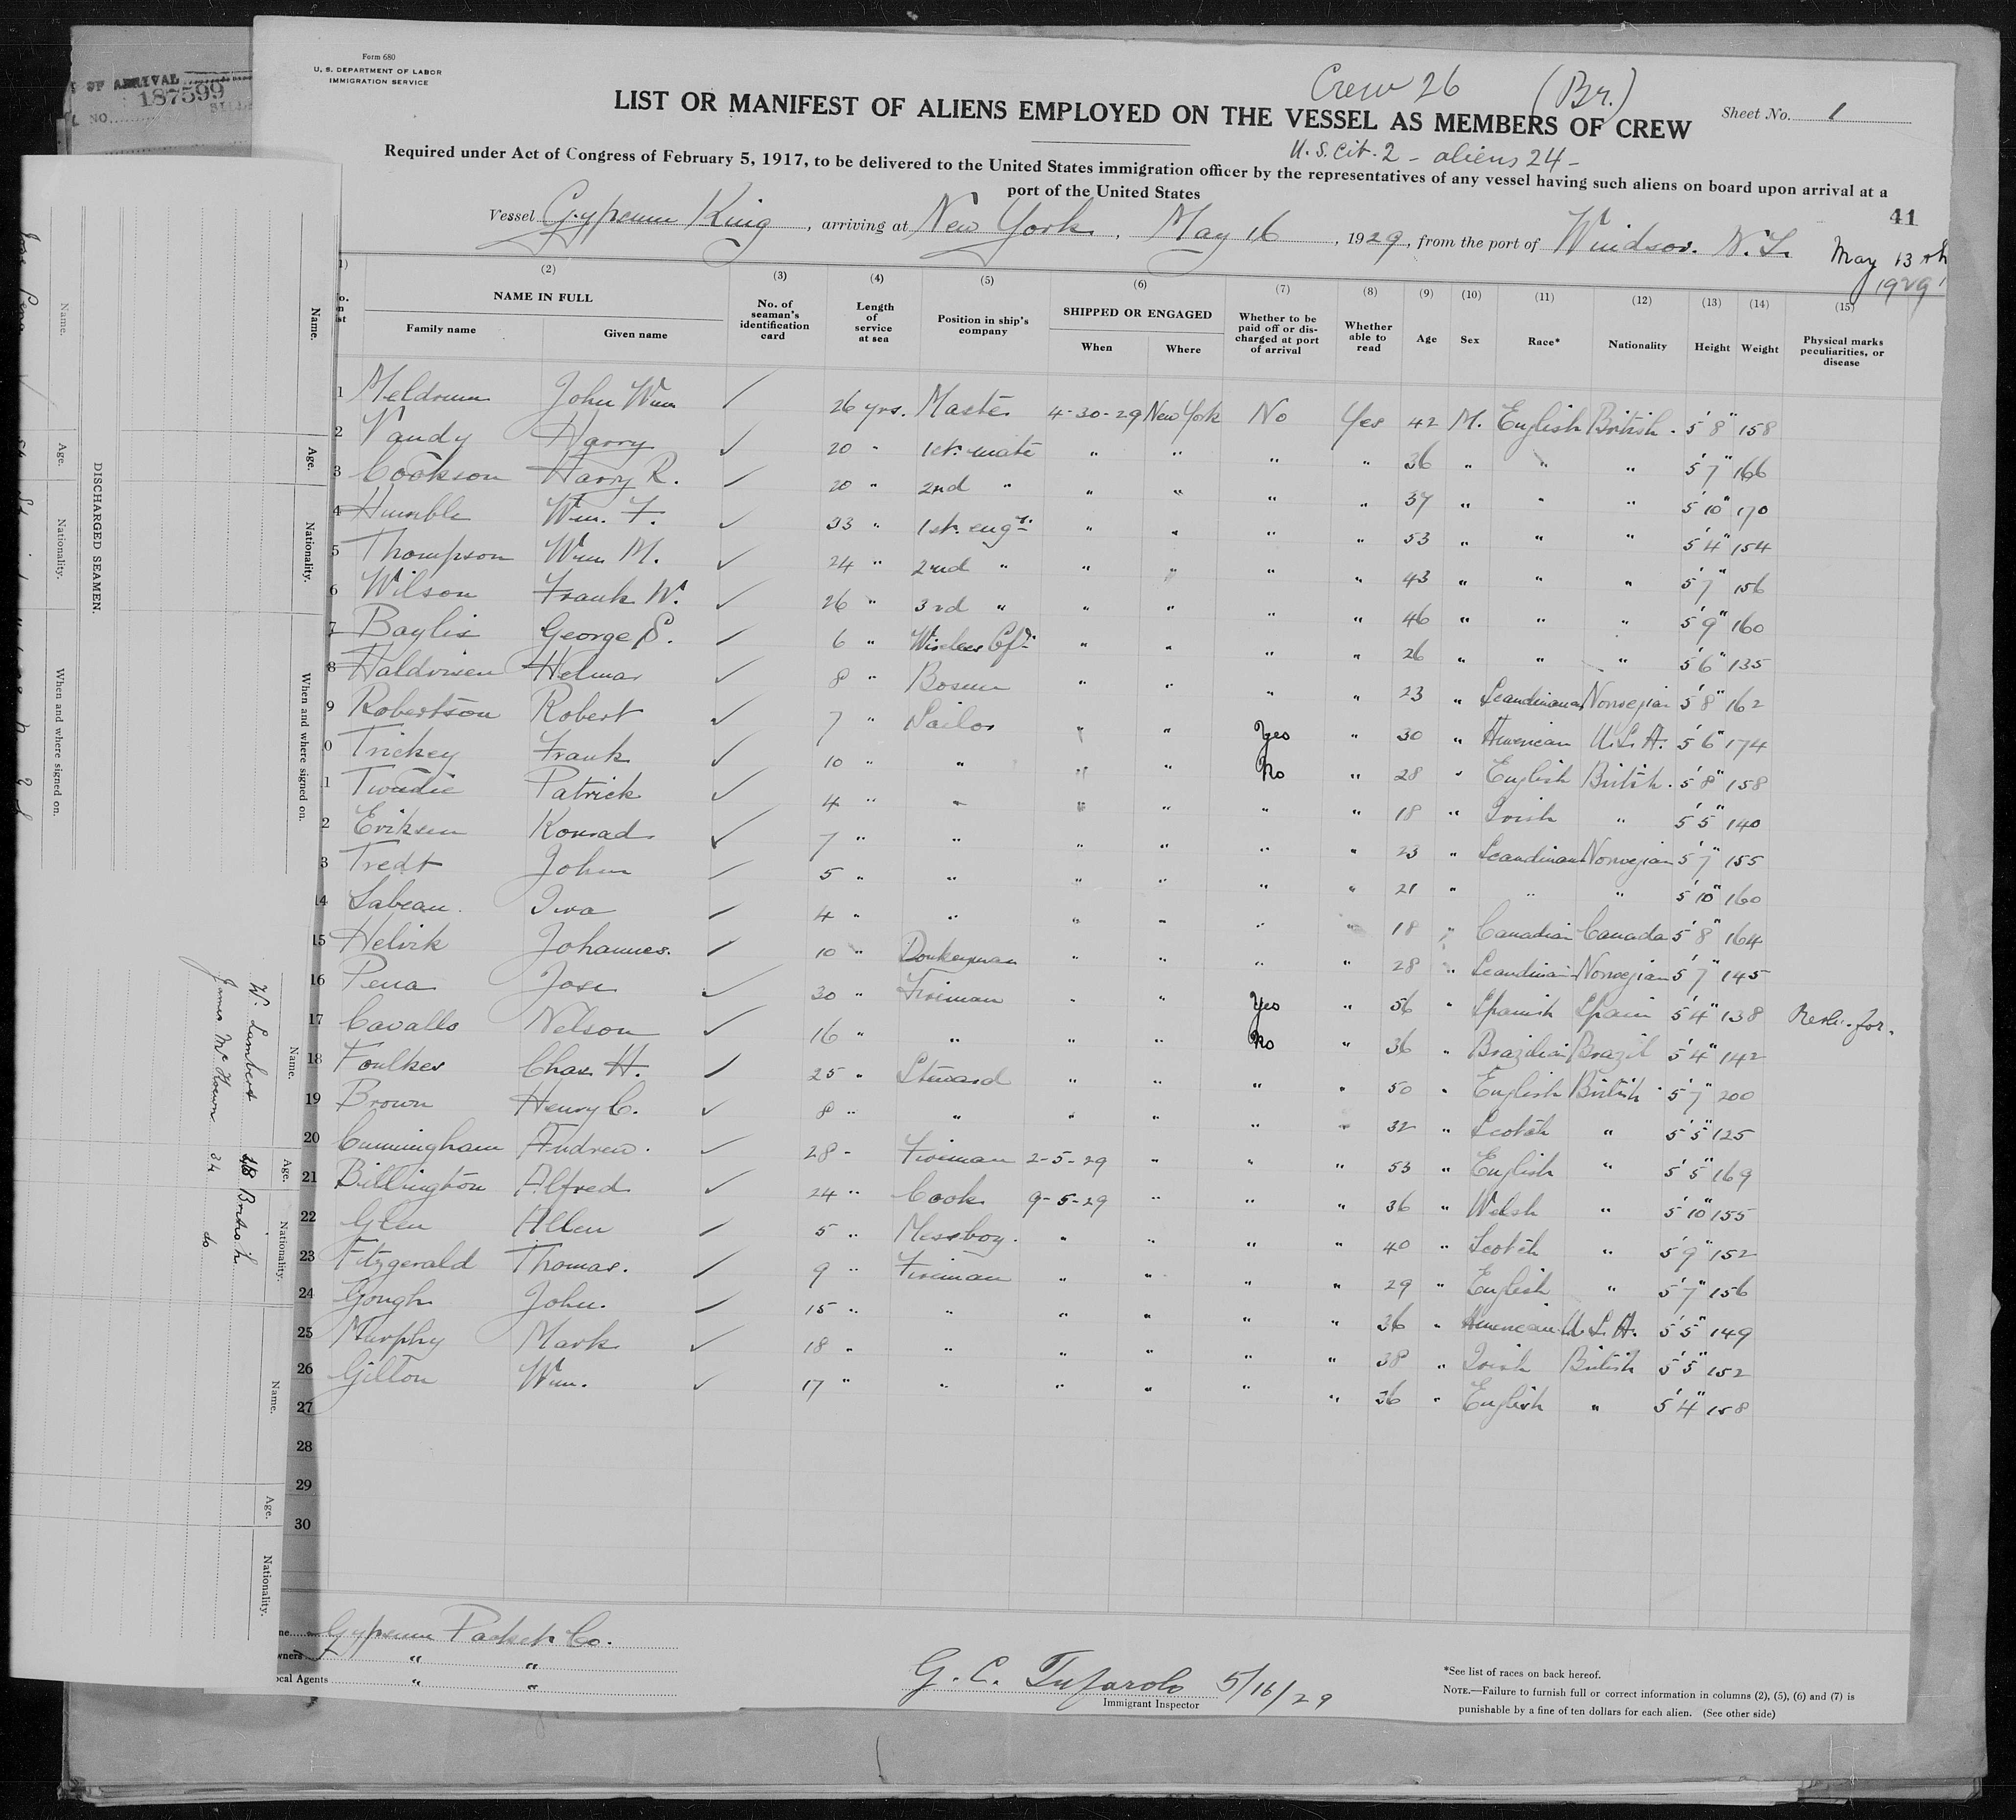 OF ARRIVAL
187599
NO.
Form 680
U. S. DEPARTMENT OF LABOR
IMMIGRATION SERVICE
Crew 26 (Br.)
LIST OR MANIFEST OF ALIENS EMPLOYED ON THE VESSEL AS MEMBERS OF CREW
Sheet No. 1
U.S. Cit. 2 - aliens 24 -
Required under Act of Congress of February 5, 1917, to be delivered to the United States immigration officer by the representatives of any vessel having such aliens on board upon arrival at a
port of the United States
41
Vessel Gypsum King, arriving at New York, May 16, 1929, from the port of Windsor. N.S. May 13th
1929
(1) (2) (3) (4) (5) (6) (7) (8) (9) (10) (11) (12) (13) (14) (15)
NAME IN FULL
Family name Given name
No. of seaman's identification card
Length of service at sea
Position in ship's company
SHIPPED OR ENGAGED
When Where
Whether to be paid off or discharged at port of arrival
Whether able to read
Age Sex Race* Nationality Height Weight
Physical marks peculiarities, or disease
1 Meldrum John Wm 26 yrs. Master 4-30-29 New York No Yes 42 M. English British. 5'8" 158
2 Vandy Harry 20 " 1st. mate " " " " 36 " " " 5'7" 166
3 Cookson Harry R. 20 " 2nd " " " " " 37 " " " 5'10" 170
4 Humble Wm. F. 33 " 1st. engr. " " " " 53 " " " 5'4" 154
5 Thompson Wm M. 24 " 2nd " " " " " 43 " " " 5'7" 156
6 Wilson Frank W. 26 " 3rd " " " " " 46 " " " 5'9" 160
7 Baylis George S. 6 " Wireless Opr. " " " " 26 " " " 5'6" 135
8 Haldorsen Helmar 8 " Bosun " " " " 23 " Scandinavian Norwegian 5'8" 162
9 Robertson Robert 7 " Sailor " " Yes " 30 " American U.S.A. 5'6" 174
0 Trickey Frank 10 " " " " No " 28 " English British. 5'8" 158
1 Twedie Patrick 4 " " " " " " 18 " Irish " 5'5" 140
2 Eriksen Konrad 7 " " " " " " 23 " Scandinavian Norwegian 5'7" 155
3 Tredt John 5 " " " " " " 21 " " " 5'10" 160
14 Labeau Iva 4 " " " " " " 18 " Canadian Canada 5'8" 164
15 Helvik Johannes. 10 " Donkeyman " " " " 28 " Scandinavian Norwegian 5'7" 145
16 Pena Jose 30 " Fireman " " Yes " 56 " Spanish Spain 5'4" 138
17 Cavallo Nelson 16 " " " " No " 36 " Brazilian Brazil 5'4" 142
18 Foulkes Chas H. 25 " Steward " " " " 50 " English British 5'7" 200
19 Brown Henry C. 8 " " " " " " 32 " Scotch " 5'5" 125
20 Cunningham Andrew. 28 - Fireman 2-5-29 " " " 53 " English " 5'5" 169
21 Billington Alfred 24 " Cook 9-5-29 " " " 36 " Welsh " 5'10" 155
22 Glen Allen 5 " Messboy. " " " " 40 " Scotch " 5'9" 152
23 Fitzgerald Thomas. 9 " Fireman " " " " 29 " English " 5'7" 156
24 Gough John. 15 " " " " " " 36 " American U.S.A. 5'5" 149
25 Murphy Mark 18 " " " " " " 38 " Irish British 5'5" 152
26 Gilton Wm. 17 " " " " " " 36 " English " 5'4" 158
27
28
29
30
Gypsum Packet Co.
wners " "
ocal Agents " "
G. C. Tufarolo 5/16/29
Immigrant Inspector
*See list of races on back hereof.
NOTE.—Failure to furnish full or correct information in columns (2), (5), (6) and (7) is
punishable by a fine of ten dollars for each alien. (See other side)
DISCHARGED SEAMEN.
Name. Age. Nationality. When and where signed on.
Name. Age. Nationality. When and where signed on.
Name. Age. Nationality.
W. Lambert 48 British
James 34 do
Name. Age. Nationality.
Jose Pena